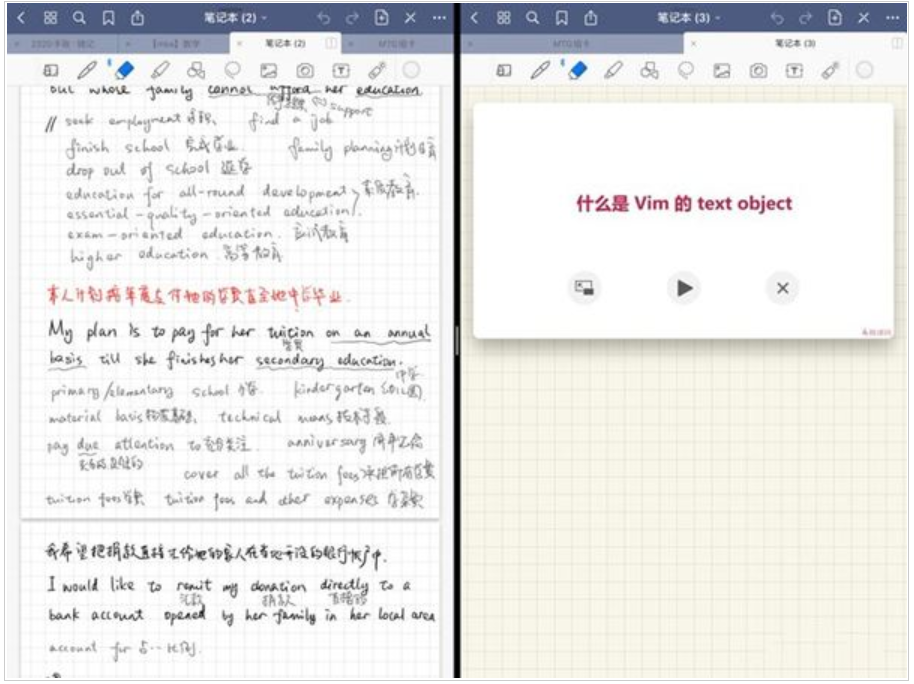 笔记本 (2)
2020手账·随记
数学
笔记本 (2)
MTG组卡
but whose family cannot afford her education
support
// seek employment 求职. find a job
finish school 完成学业. family planning 计划生育
drop out of school 退学
education for all-round development
essential-quality-oriented education 素质教育.
exam-oriented education. 应试教育
higher education 高等教育
本人计划按年度支付她的学费直至她中学毕业.
My plan is to pay for her tuition on an annual
学费
basis till she finishes her secondary education.
中学
primary/elementary school 小学. kindergarten 幼儿园
material basis 物质基础, technical means 技术手段
pay due attention to 充分关注. anniversary 周年纪念
cover all the tuition fees 承担所有学费
tuition fees 学费 tuition fees and other expenses 学杂费
我希望把捐款直接汇给她的家人在当地开设的银行帐户中.
I would like to remit my donation directly to a
汇款 捐款 直接的
bank account opened by her family in her local area
account for 占…比例.
笔记本 (3)
MTG组卡
笔记本 (3)
什么是 Vim 的 text object